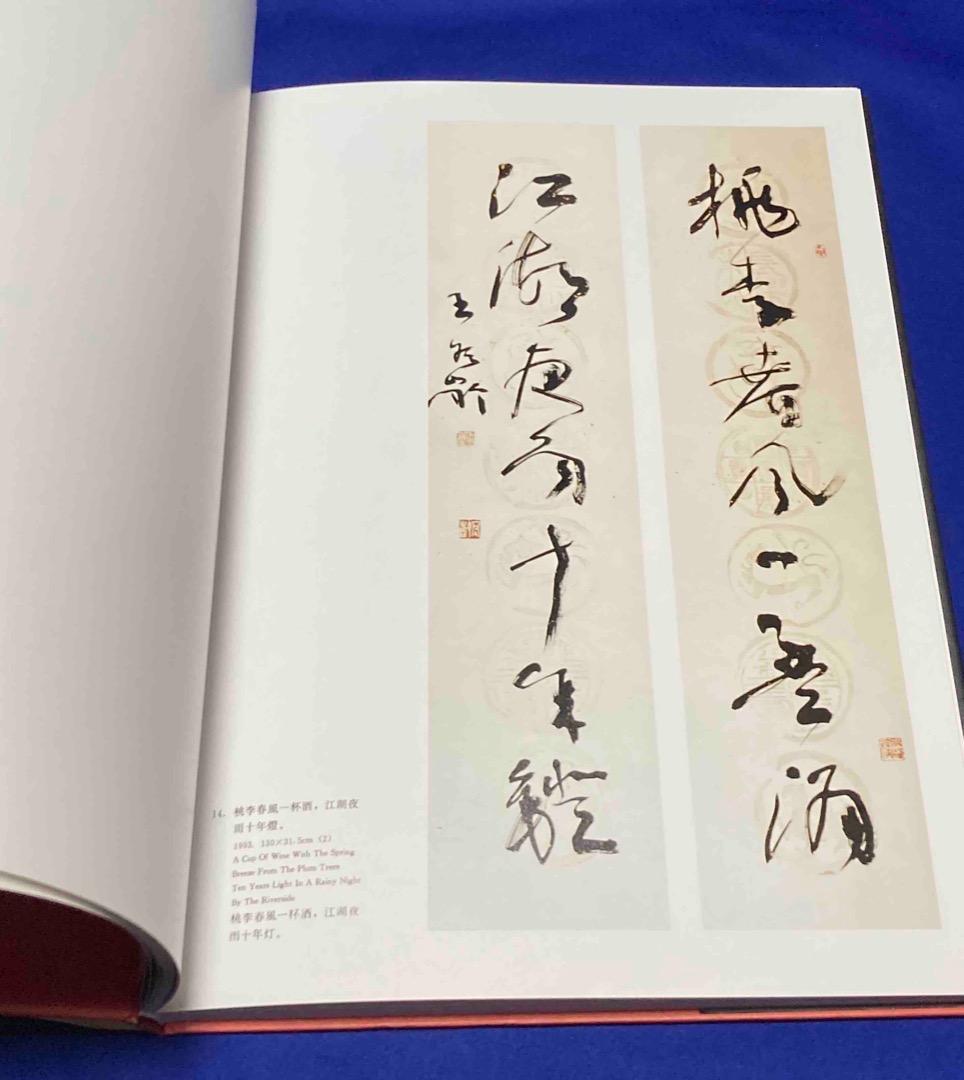 桃李春風一盃酒
江湖夜雨十年燈
王冬齡
14. 桃李春風一杯酒，江湖夜
雨十年燈。
1993. 130×31.5cm (2)
A Cup Of Wine With The Spring
Breeze From The Plum Trees
Ten Years Light In A Rainy Night
By The Riverside
桃李春風一杯酒，江湖夜
雨十年灯。